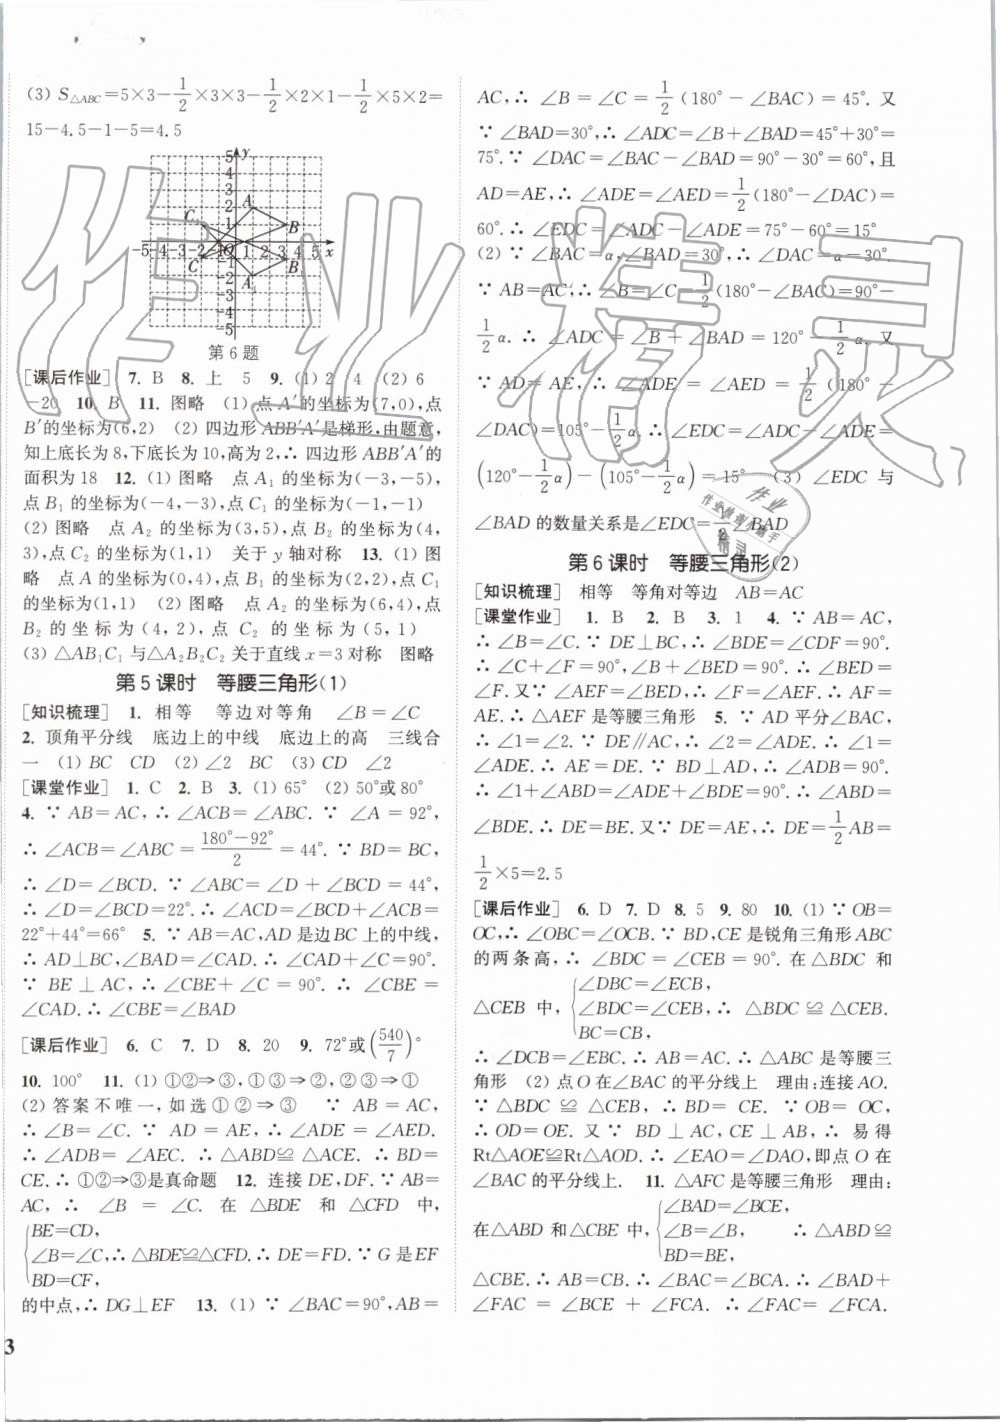 (3) S△ABC＝5×3－1/2×3×3－1/2×2×1－1/2×5×2＝
15－4.5－1－5＝4.5
第 6 题
[课后作业] 7. B 8. 上 5 9. (1) 2 4 (2) 6
－20 10. B 11. 图略 (1) 点 A′的坐标为(7,0),点
B′的坐标为(6,2) (2) 四边形 ABB′A′是梯形.由题意,
知上底长为 8,下底长为 10,高为 2,∴ 四边形 ABB′A′的
面积为 18 12. (1) 图略 点 A₁ 的坐标为(－3,－5),
点 B₁ 的坐标为(－4,－3),点 C₁ 的坐标为(－1,－1)
(2) 图略 点 A₂ 的坐标为(3,5),点 B₂ 的坐标为(4,
3),点 C₂ 的坐标为(1,1) 关于 y 轴对称 13. (1) 图
略 点 A 的坐标为(0,4),点 B₁ 的坐标为(2,2),点 C₁
的坐标为(1,1) (2) 图略 点 A₂ 的坐标为(6,4),点
B₂ 的坐标为(4,2),点 C₂ 的坐标为(5,1)
(3) △AB₁C₁ 与△A₂B₂C₂ 关于直线 x＝3 对称 图略
第 5 课时 等腰三角形(1)
[知识梳理] 1. 相等 等边对等角 ∠B＝∠C
2. 顶角平分线 底边上的中线 底边上的高 三线合
一 (1) BC CD (2) ∠2 BC (3) CD ∠2
[课堂作业] 1. C 2. B 3. (1) 65° (2) 50°或 80°
4. ∵ AB＝AC,∴ ∠ACB＝∠ABC. ∵ ∠A＝92°,
∴ ∠ACB＝∠ABC＝(180°－92°)/2＝44°. ∵ BD＝BC,
∴ ∠D＝∠BCD. ∵ ∠ABC＝∠D＋∠BCD＝44°,
∴ ∠D＝∠BCD＝22°. ∴ ∠ACD＝∠BCD＋∠ACB＝
22°＋44°＝66° 5. ∵ AB＝AC,AD 是边 BC 上的中线,
∴ AD⊥BC,∠BAD＝∠CAD. ∴ ∠CAD＋∠C＝90°.
∵ BE⊥AC,∴ ∠CBE＋∠C＝90°. ∴ ∠CBE＝
∠CAD. ∴ ∠CBE＝∠BAD
[课后作业] 6. C 7. D 8. 20 9. 72°或(540/7)°
10. 100° 11. (1) ①②⇒③,①③⇒②,②③⇒①
(2) 答案不唯一,如选①②⇒③ ∵ AB＝AC,
∴ ∠B＝∠C. ∵ AD＝AE,∴ ∠ADE＝∠AED.
∴ ∠ADB＝∠AEC. ∴ △ABD≌△ACE. ∴ BD＝
CE. ∴ ①②⇒③是真命题 12. 连接 DE,DF. ∵ AB＝
AC,∴ ∠B＝∠C. 在△BDE 和△CDF 中,
BE＝CD,
∠B＝∠C,∴ △BDE≌△CFD. ∴ DE＝FD. ∵ G 是 EF
BD＝CF,
的中点,∴ DG⊥EF 13. (1) ∵ ∠BAC＝90°,AB＝
3
AC,∴ ∠B＝∠C＝1/2(180°－∠BAC)＝45°. 又
∵ ∠BAD＝30°,∴ ∠ADC＝∠B＋∠BAD＝45°＋30°＝
75°. ∵ ∠DAC＝∠BAC－∠BAD＝90°－30°＝60°,且
AD＝AE,∴ ∠ADE＝∠AED＝1/2(180°－∠DAC)＝
60°. ∴ ∠EDC＝∠ADC－∠ADE＝75°－60°＝15°
(2) ∵ ∠BAC＝α,∠BAD＝30°,∴ ∠DAC＝α－30°.
∵ AB＝AC,∴ ∠B＝∠C＝1/2(180°－∠BAC)＝90°－
1/2α. ∴ ∠ADC＝∠B＋∠BAD＝120°－1/2α. 又
∵ AD＝AE,∴ ∠ADE＝∠AED＝1/2(180°－
∠DAC)＝105°－1/2α. ∴ ∠EDC＝∠ADC－∠ADE＝
(120°－1/2α)－(105°－1/2α)＝15° (3) ∠EDC 与
∠BAD 的数量关系是∠EDC＝1/2∠BAD
第 6 课时 等腰三角形(2)
[知识梳理] 相等 等角对等边 AB＝AC
[课堂作业] 1. B 2. B 3. 1 4. ∵ AB＝AC,
∴ ∠B＝∠C. ∵ DE⊥BC,∴ ∠BDE＝∠CDF＝90°.
∴ ∠C＋∠F＝90°,∠B＋∠BED＝90°. ∴ ∠BED＝
∠F. 又∵ ∠AEF＝∠BED,∴ ∠F＝∠AEF. ∴ AF＝
AE. ∴ △AEF 是等腰三角形 5. ∵ AD 平分∠BAC,
∴ ∠1＝∠2. ∵ DE∥AC,∴ ∠2＝∠ADE. ∴ ∠1＝
∠ADE. ∴ AE＝DE. ∵ BD⊥AD,∴ ∠ADB＝90°.
∴ ∠1＋∠ABD＝∠ADE＋∠BDE＝90°. ∴ ∠ABD＝
∠BDE. ∴ DE＝BE. 又∵ DE＝AE,∴ DE＝1/2AB＝
1/2×5＝2.5
[课后作业] 6. D 7. D 8. 5 9. 80 10. (1) ∵ OB＝
OC,∴ ∠OBC＝∠OCB. ∵ BD,CE 是锐角三角形 ABC
的两条高,∴ ∠BDC＝∠CEB＝90°. 在△BDC 和
∠DBC＝∠ECB,
△CEB 中,∠BDC＝∠CEB,∴ △BDC≌△CEB.
BC＝CB,
∴ ∠DCB＝∠EBC. ∴ AB＝AC. ∴ △ABC 是等腰三
角形 (2) 点 O 在∠BAC 的平分线上 理由:连接 AO.
∵ △BDC≌△CEB,∴ BD＝CE. ∵ OB＝OC,
∴ OD＝OE. 又∵ BD⊥AC,CE⊥AB,∴ 易得
Rt△AOE≌Rt△AOD. ∴ ∠EAO＝∠DAO,即点 O 在
∠BAC 的平分线上. 11. △AFC 是等腰三角形 理由:
∠BAD＝∠BCE,
在△ABD 和△CBE 中,∠B＝∠B, ∴ △ABD≌
BD＝BE,
△CBE. ∴ AB＝CB. ∴ ∠BAC＝∠BCA. ∴ ∠BAD＋
∠FAC＝∠BCE＋∠FCA. ∴ ∠FAC＝∠FCA.
作业精灵